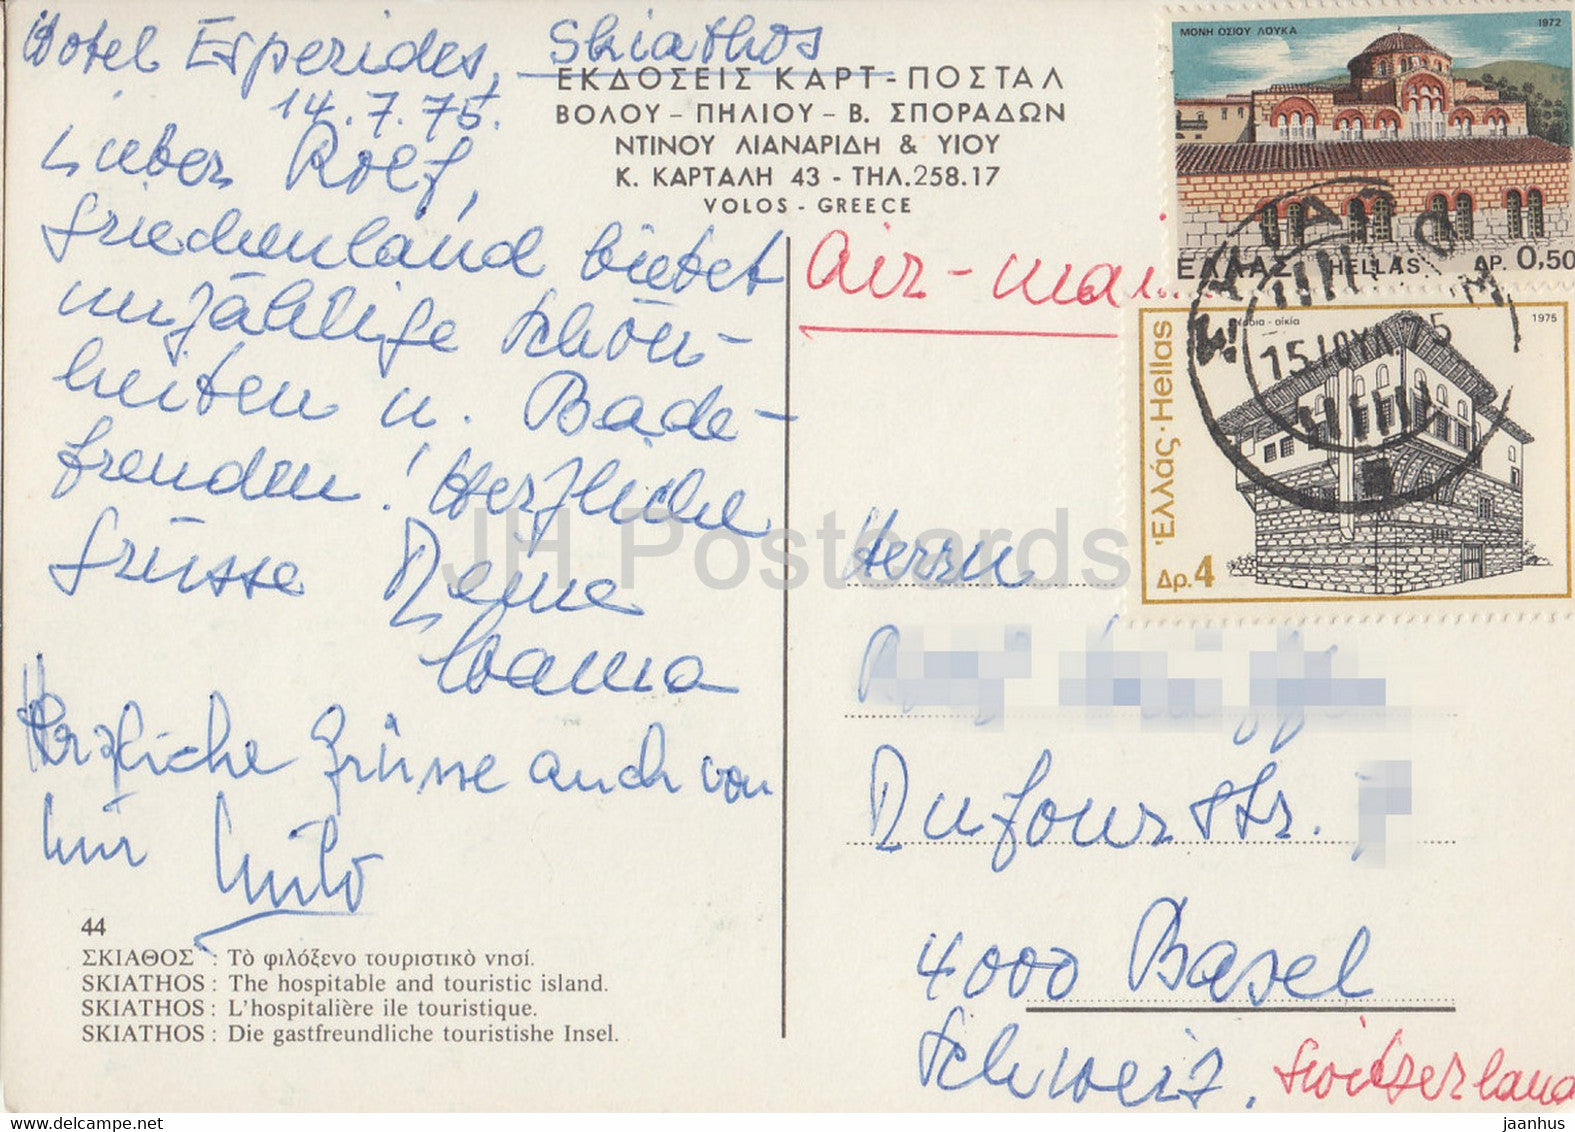 Hotel Esperides, Skiathos
14.7.75.
Lieber Rolf,
Griechenland bietet
unzählige Schön-
heiten u. Bade-
freuden! Herzliche
Grüsse Deine
Mama
Herzliche Grüsse auch von
mir
44
ΣΚΙΑΘΟΣ : Τὸ φιλόξενο τουριστικὸ νησί.
SKIATHOS : The hospitable and touristic island.
SKIATHOS : L'hospitalière ile touristique.
SKIATHOS : Die gastfreundliche touristishe Insel.
ΕΚΔΟΣΕΙΣ ΚΑΡΤ - ΠΟΣΤΑΛ
ΒΟΛΟΥ - ΠΗΛΙΟΥ - Β. ΣΠΟΡΑΔΩΝ
ΝΤΙΝΟΥ ΛΙΑΝΑΡΙΔΗ & ΥΙΟΥ
Κ. ΚΑΡΤΑΛΗ 43 - ΤΗΛ.258.17
VOLOS - GREECE
Air-mai
ΜΟΝΗ ΟΣΙΟΥ ΛΟΥΚΑ 1972
ΕΛΛΑΣ HELLAS ΔΡ. 0,50
οικία 1975
Ἑλλάς · Hellas
Δρ. 4
15 ΙΟΥΛ 75
Herrn
Dufourstr.
4000 Basel
Schweiz. Switzerland
JH Postcards
www.delcampe.net
jaanhus